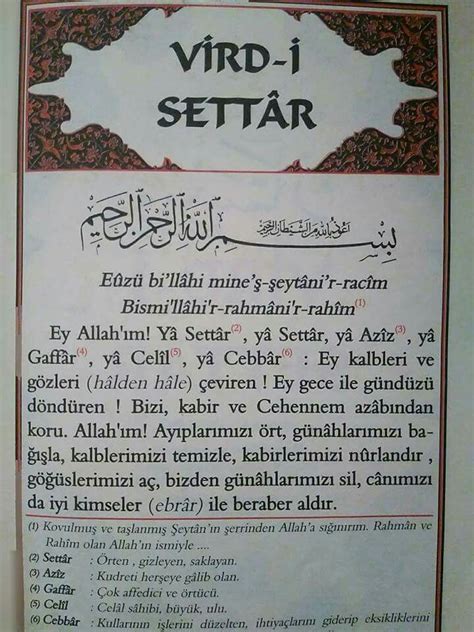 VİRD-İ
SETTÂR
بِسْمِ اللهِ الرَّحْمٰنِ الرَّحِيمِ اَعُوذُ بِاللهِ مِنَ الشَّيْطَانِ الرَّجِيمِ
Eûzü bi'llâhi mine'ş-şeytâni'r-racîm
Bismi'llâhi'r-rahmâni'r-rahîm(1)
Ey Allah'ım! Yâ Settâr(2), yâ Settâr, yâ Azîz(3), yâ
Gaffâr(4), yâ Celîl(5), yâ Cebbâr(6) : Ey kalbleri ve
gözleri (hâlden hâle) çeviren ! Ey gece ile gündüzü
döndüren ! Bizi, kabir ve Cehennem azâbından
koru. Allah'ım! Ayıplarımızı ört, günâhlarımızı ba-
ğışla, kalblerimizi temizle, kabirlerimizi nûrlandır ,
göğüslerimizi aç, bizden günâhlarımızı sil, cânımızı
da iyi kimseler (ebrâr) ile beraber aldır.
(1) Kovulmuş ve taşlanmış Şeytân'ın şerrinden Allah'a sığınırım. Rahmân ve
Rahîm olan Allah'ın ismiyle ....
(2) Settâr : Örten , gizleyen, saklayan.
(3) Azîz : Kudreti herşeye gâlib olan.
(4) Gaffâr : Çok affedici ve örtücü.
(5) Celîl : Celâl sâhibi, büyük, ulu.
(6) Cebbâr : Kullarının işlerini düzelten, ihtiyaçlarını giderip eksikliklerini